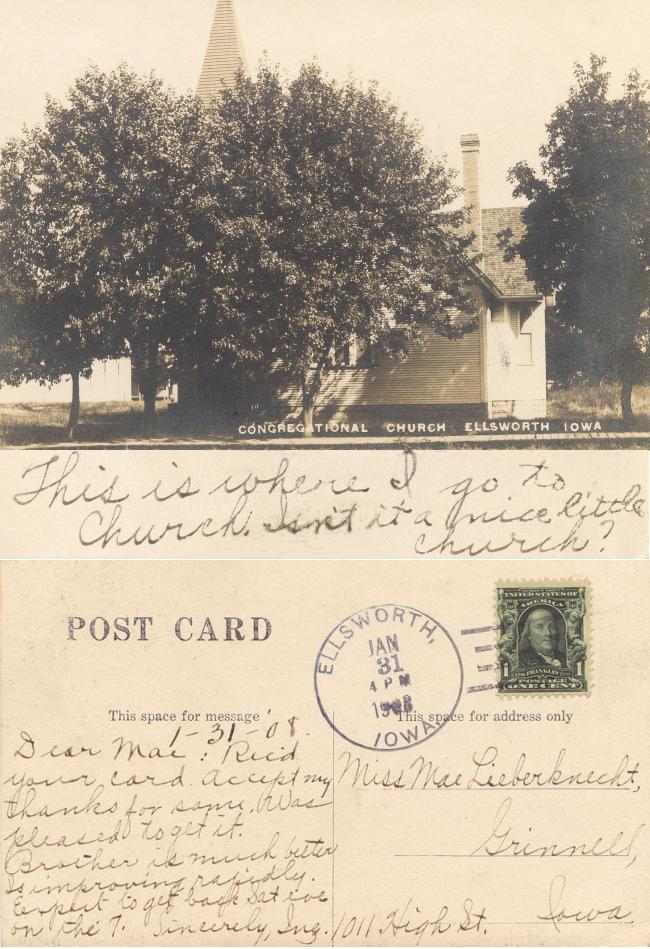 CONGREGATIONAL CHURCH ELLSWORTH IOWA
This is where I go to
Church. Isn't it a nice little
church?
POST CARD
ELLSWORTH,
JAN
31
4 PM
1908
IOWA.
UNITED STATES OF
AMERICA
1
FRANKLIN
1
POSTAGE
ONE CENT
This space for message
This space for address only
1-31-08.
Dear Mae: Rec'd
your card. Accept my
thanks for same. Was
pleased to get it.
Brother is much better
Is improving rapidly.
Expect to get back Sat eve
on the 7. Sincerely, Ing.
Miss Mae Lieberknecht,
Grinnell,
1011 High St. Iowa.